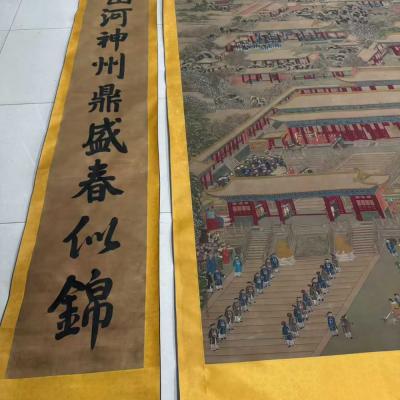 河神州鼎盛春似錦